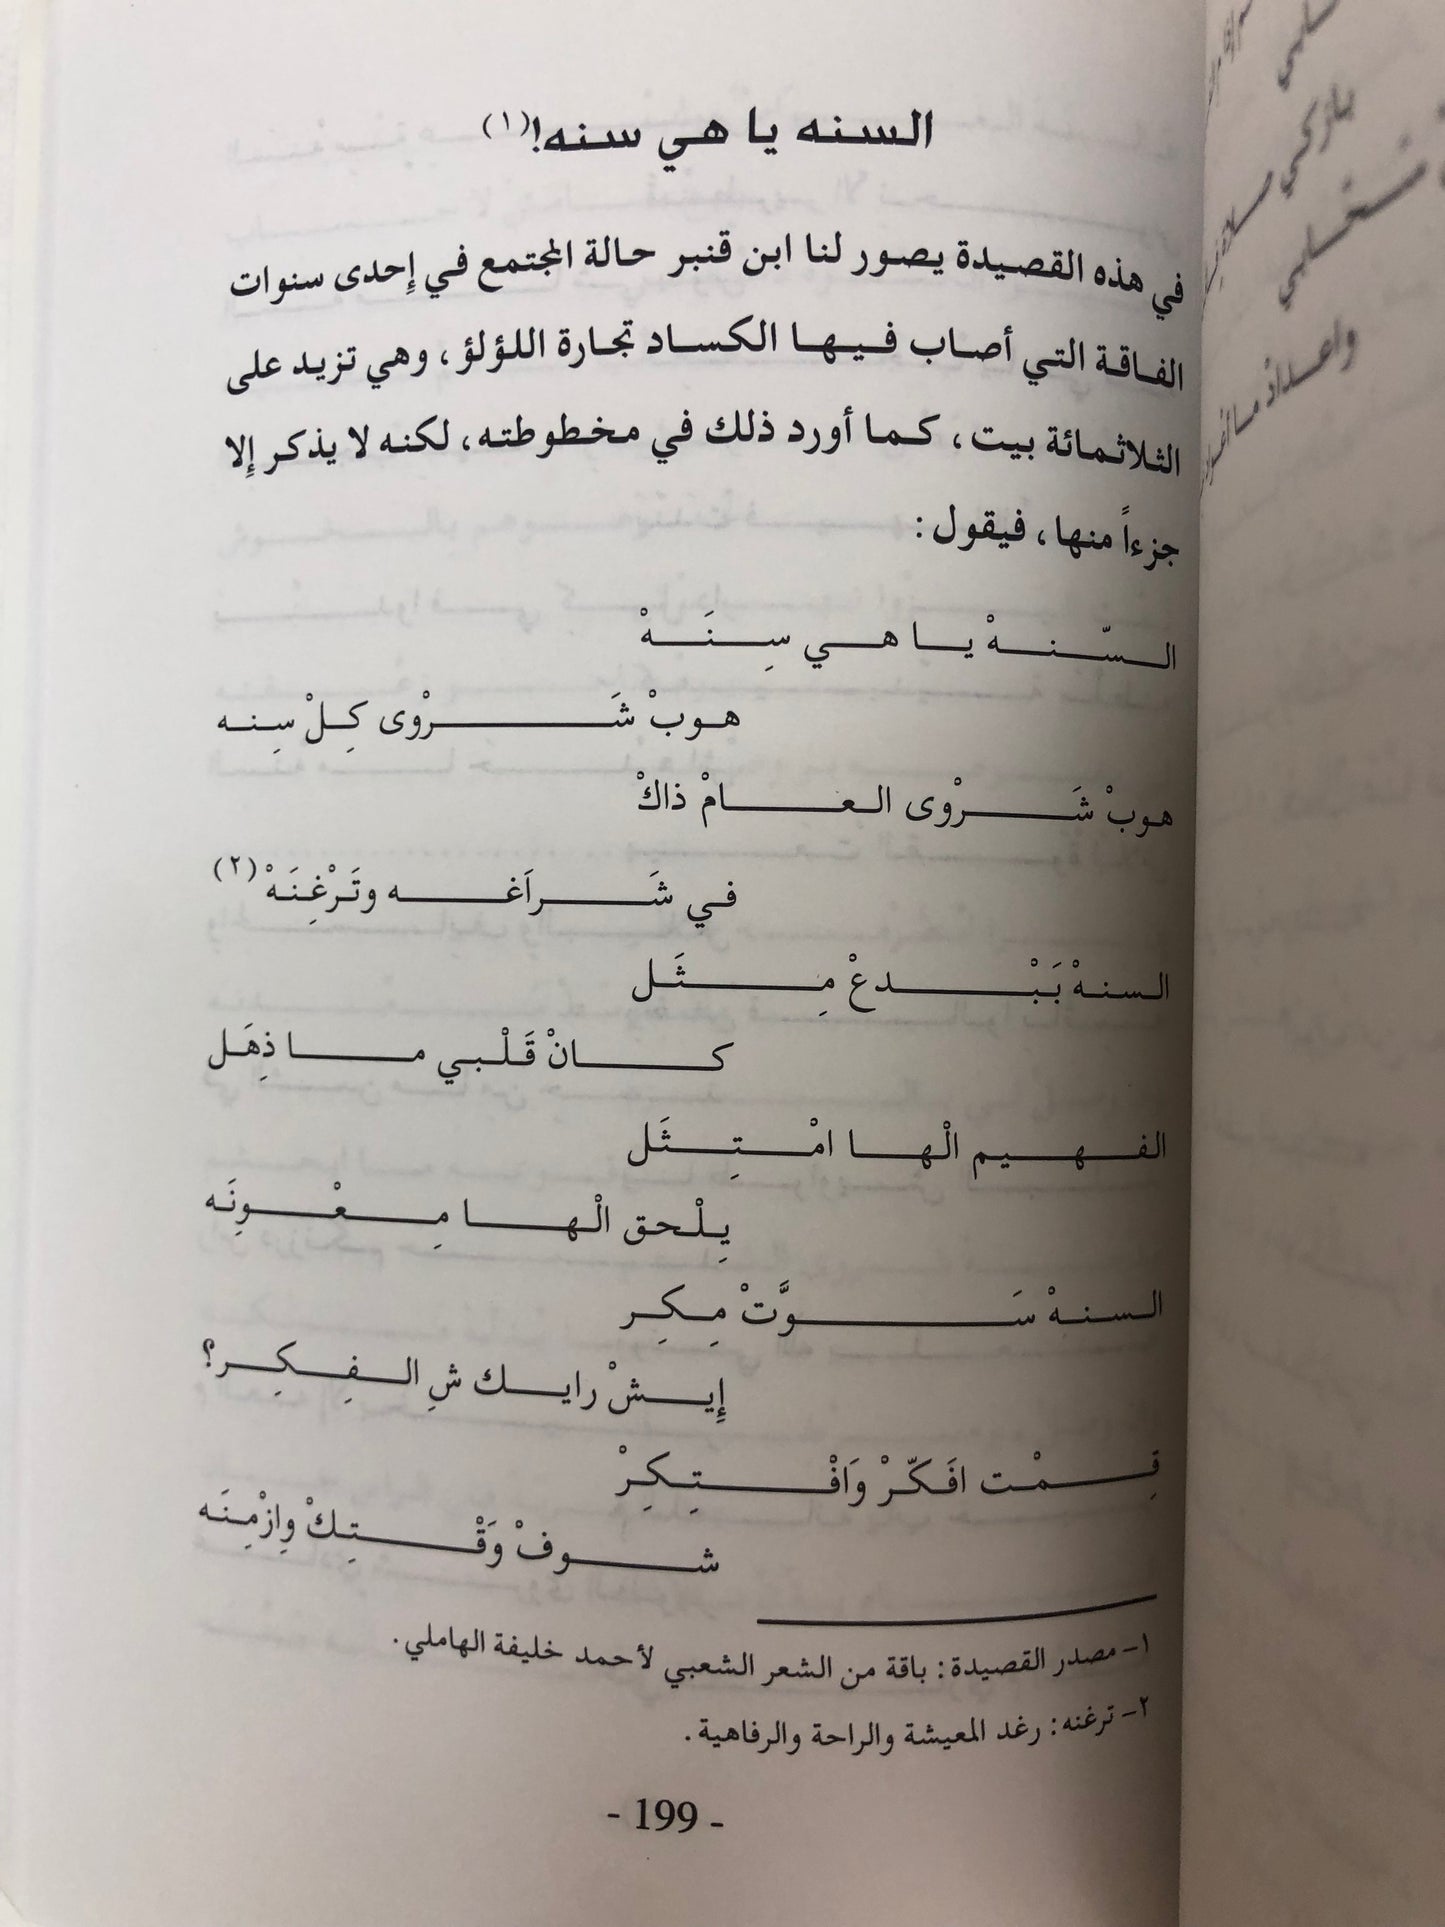 السنه يا هي سنه!(١)
في هذه القصيدة يصور لنا ابن قنبر حالة المجتمع في إحدى سنوات
الفاقة التي أصاب فيها الكساد تجارة اللؤلؤ، وهي تزيد على
الثلاثمائة بيت، كما أورد ذلك في مخطوطته، لكنه لا يذكر إلا
جزءاً منها، فيقول:
السّنهْ يا هي سِنَهْ
هوبْ شَرْوى كِلْ سِنه
هوبْ شَرْوى العامْ ذاكْ
في شَراَغه وتَرْغِنَهْ(٢)
السنهْ بَبْدعْ مِثَل
كانْ قَلْبي ما ذِهَل
الفهيم الْها امْتِثَل
يِلْحق الْها مِعْونَه
السنهْ سَوَّتْ مِكِر
إيشْ رايك شِ الفِكِر؟
قِمْت افَكّرْ وَافْتِكِرْ
شوفْ وَقْتِكْ وِازْمِنَه
١- مصدر القصيدة: باقة من الشعر الشعبي لأحمد خليفة الهاملي.
٢- ترغنه: رغد المعيشة والراحة والرفاهية.
- 199 -